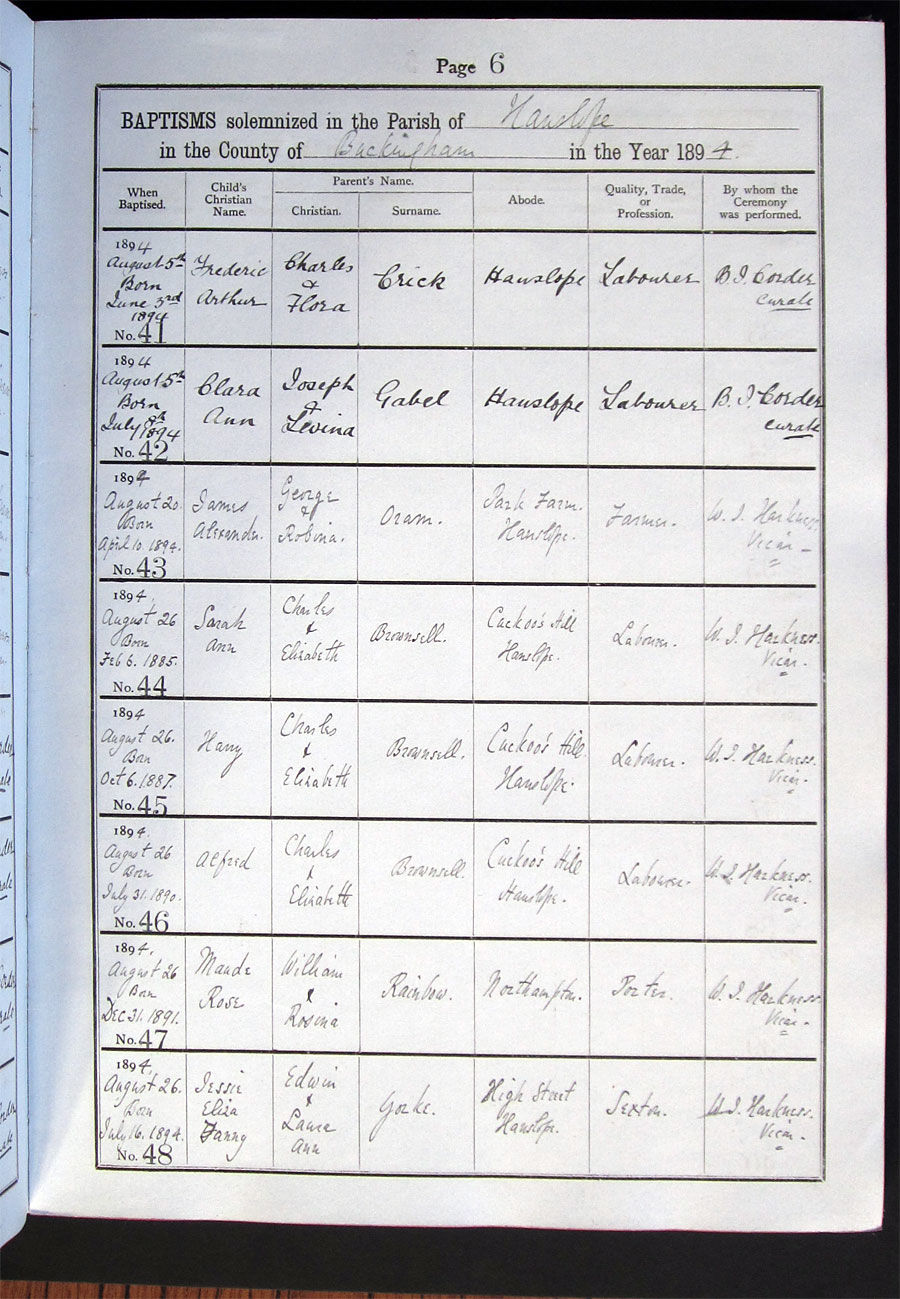 Page 6
BAPTISMS solemnized in the Parish of Hanslope
in the County of Buckingham in the Year 1894.
When Baptised. Child's Christian Name. Parent's Name. Christian. Surname. Abode. Quality, Trade, or Profession. By whom the Ceremony was performed.
1894
August 5th
Born
June 3rd
1894
No. 41
Frederic
Arthur
Charles
&
Flora
Crick
Hanslope
Labourer
B. J. Corder
Curate
1894
August 5th
Born
July 8th
1894
No. 42
Clara
Ann
Joseph
&
Levina
Gabel
Hanslope
Labourer
B. J. Corder
Curate
1894
August 20.
Born
April 10. 1894.
No. 43
James
Alexander.
George
&
Robina.
Oram.
Park Farm.
Hanslope.
Farmer.
W. J. Harkness.
Vicar -
1894.
August 26
Born
Feb 6. 1885.
No. 44
Sarah
Ann
Charles
&
Elizabeth
Brownsell.
Cuckoo's Hill
Hanslope.
Labourer.
W. J. Harkness.
Vicar.
1894
August 26.
Born
Oct 6. 1887.
No. 45
Harry
Charles
&
Elizabeth
Brownsell.
Cuckoo's Hill.
Hanslope.
Labourer.
W. J. Harkness.
Vicar.
1894.
August 26
Born
July 31. 1890.
No. 46
Alfred
Charles
&
Elizabeth
Brownsell.
Cuckoo's Hill
Hanslope.
Labourer.
W. J. Harkness.
Vicar.
1894.
August 26
Born
Dec 31. 1891.
No. 47
Maude
Rose
William
&
Rosina
Rainbow.
Northampton.
Porter.
W. J. Harkness.
Vicar.
1894.
August 26.
Born
July 16. 1894.
No. 48
Jessie
Eliza
Fanny
Edwin
&
Laura
Ann
Yorke.
High Street
Hanslope.
Sexton.
W. J. Harkness.
Vicar.